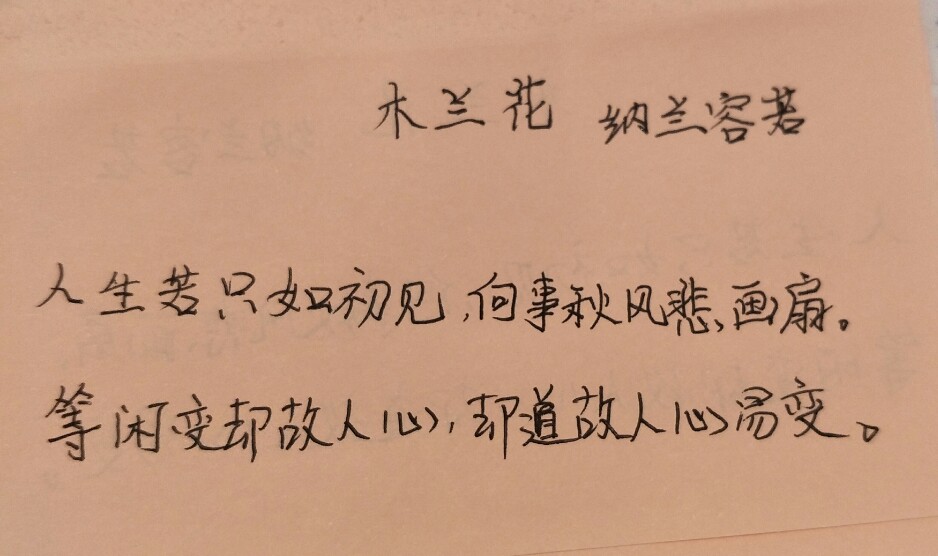 木兰花 纳兰容若
人生若只如初见,何事秋风悲画扇。
等闲变却故人心,却道故人心易变。